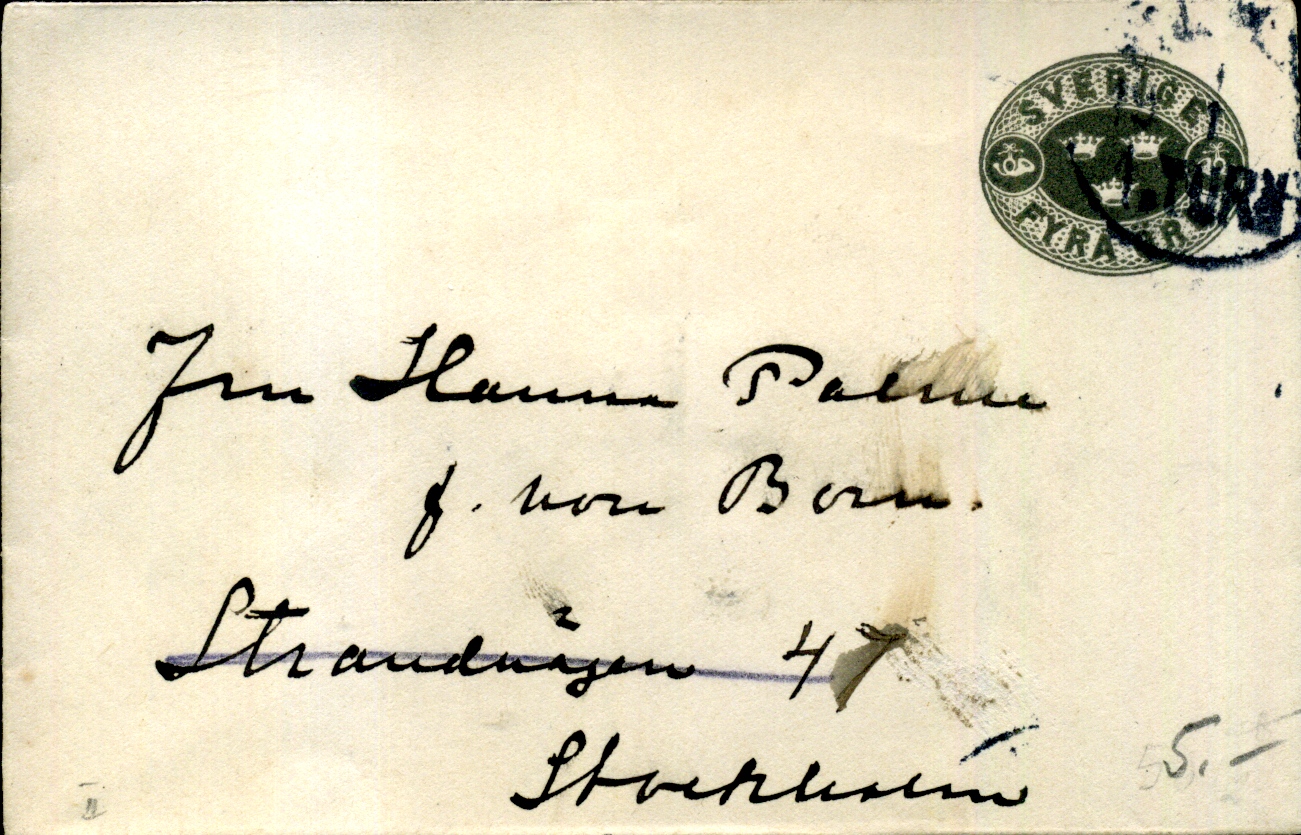 SVERIGE
FYRA ÖRE
1.TURN
Fru Hanna Palme
f. von Born.
Strandvägen 47
Stockholm
5.-